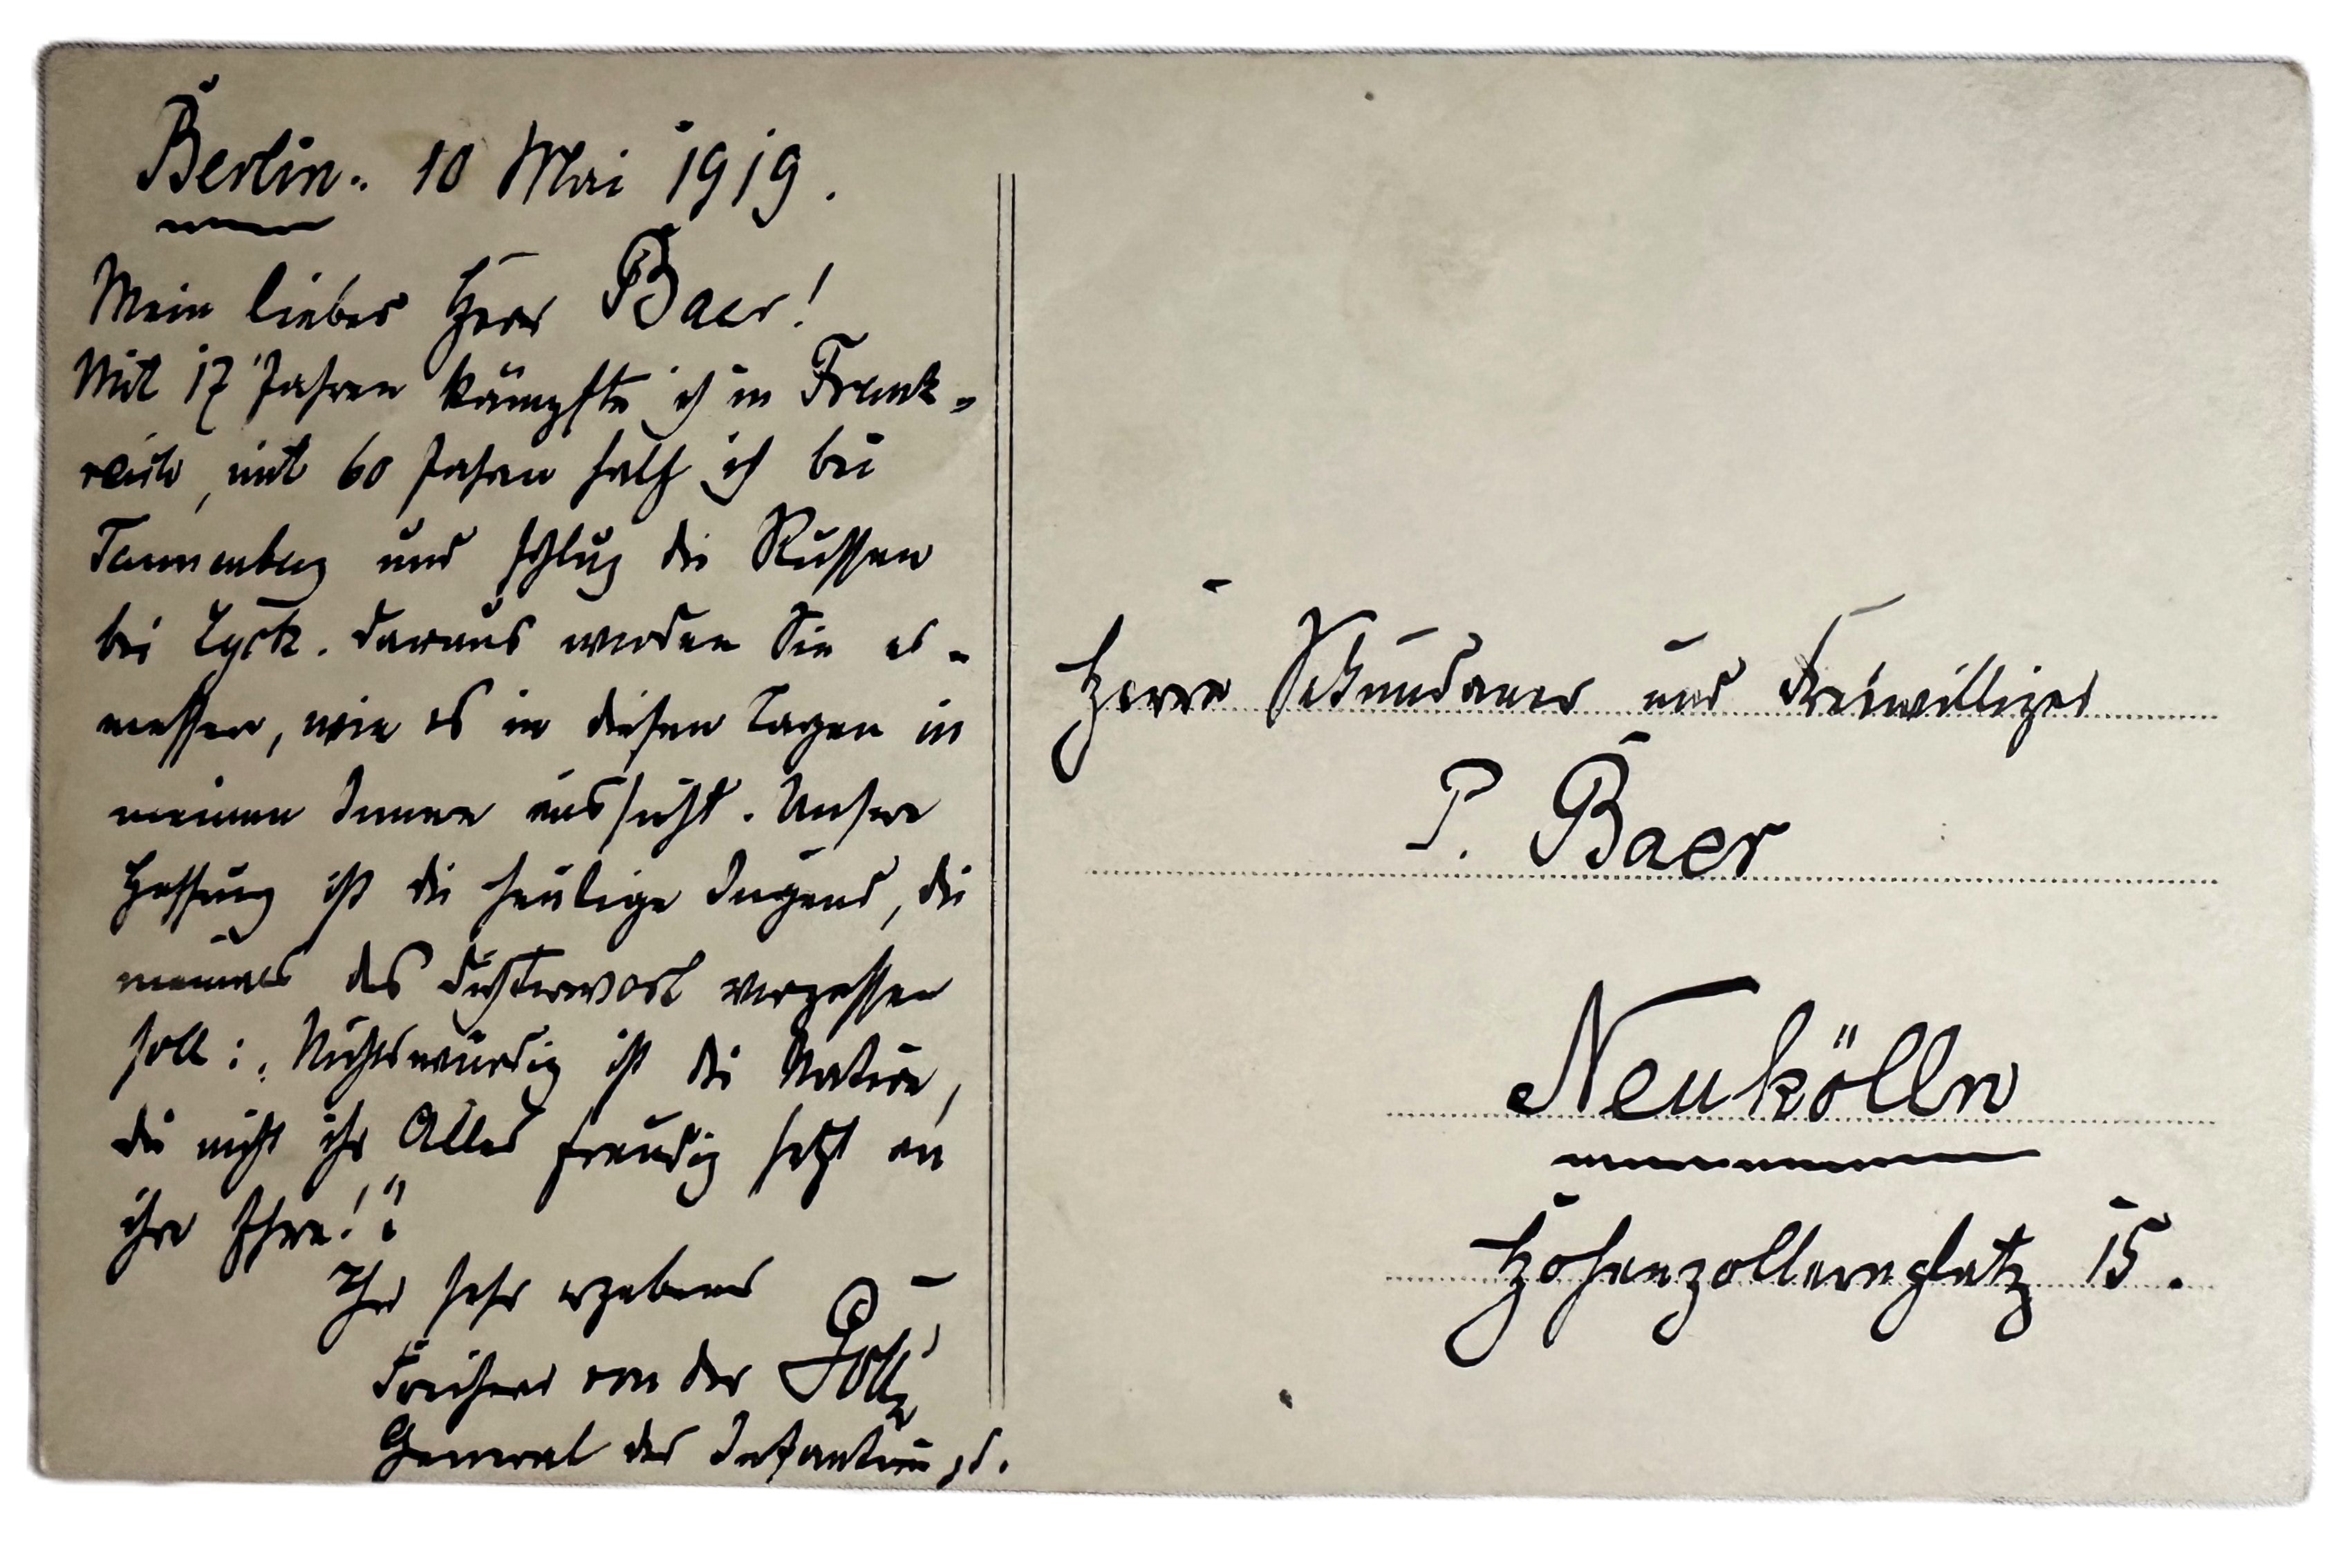 Berlin. 10 Mai 1919.
Mein lieber Herr Baer!
Mit 17 Jahren kämpfte ich in Frank-
reich, mit 60 Jahren half ich bei
Tannenberg und schlug die Russen
bei Lyck. Daraus werden Sie er-
messen, wie es in diesen Tagen in
meinem Innern aussieht. Unsere
Hoffnung ist die heutige Jugend, die
niemals das Dichterwort vergessen
soll: „Nichtswürdig ist die Nation,
die nicht ihr Alles freudig setzt an
ihre Ehre!“
Ihr sehr ergebener
Freiherr von der Goltz
General der Infanterie z. D.
Herrn Sekundaner und Freiwilliger
P. Baer
Neukölln
Hohenzollernplatz 15.